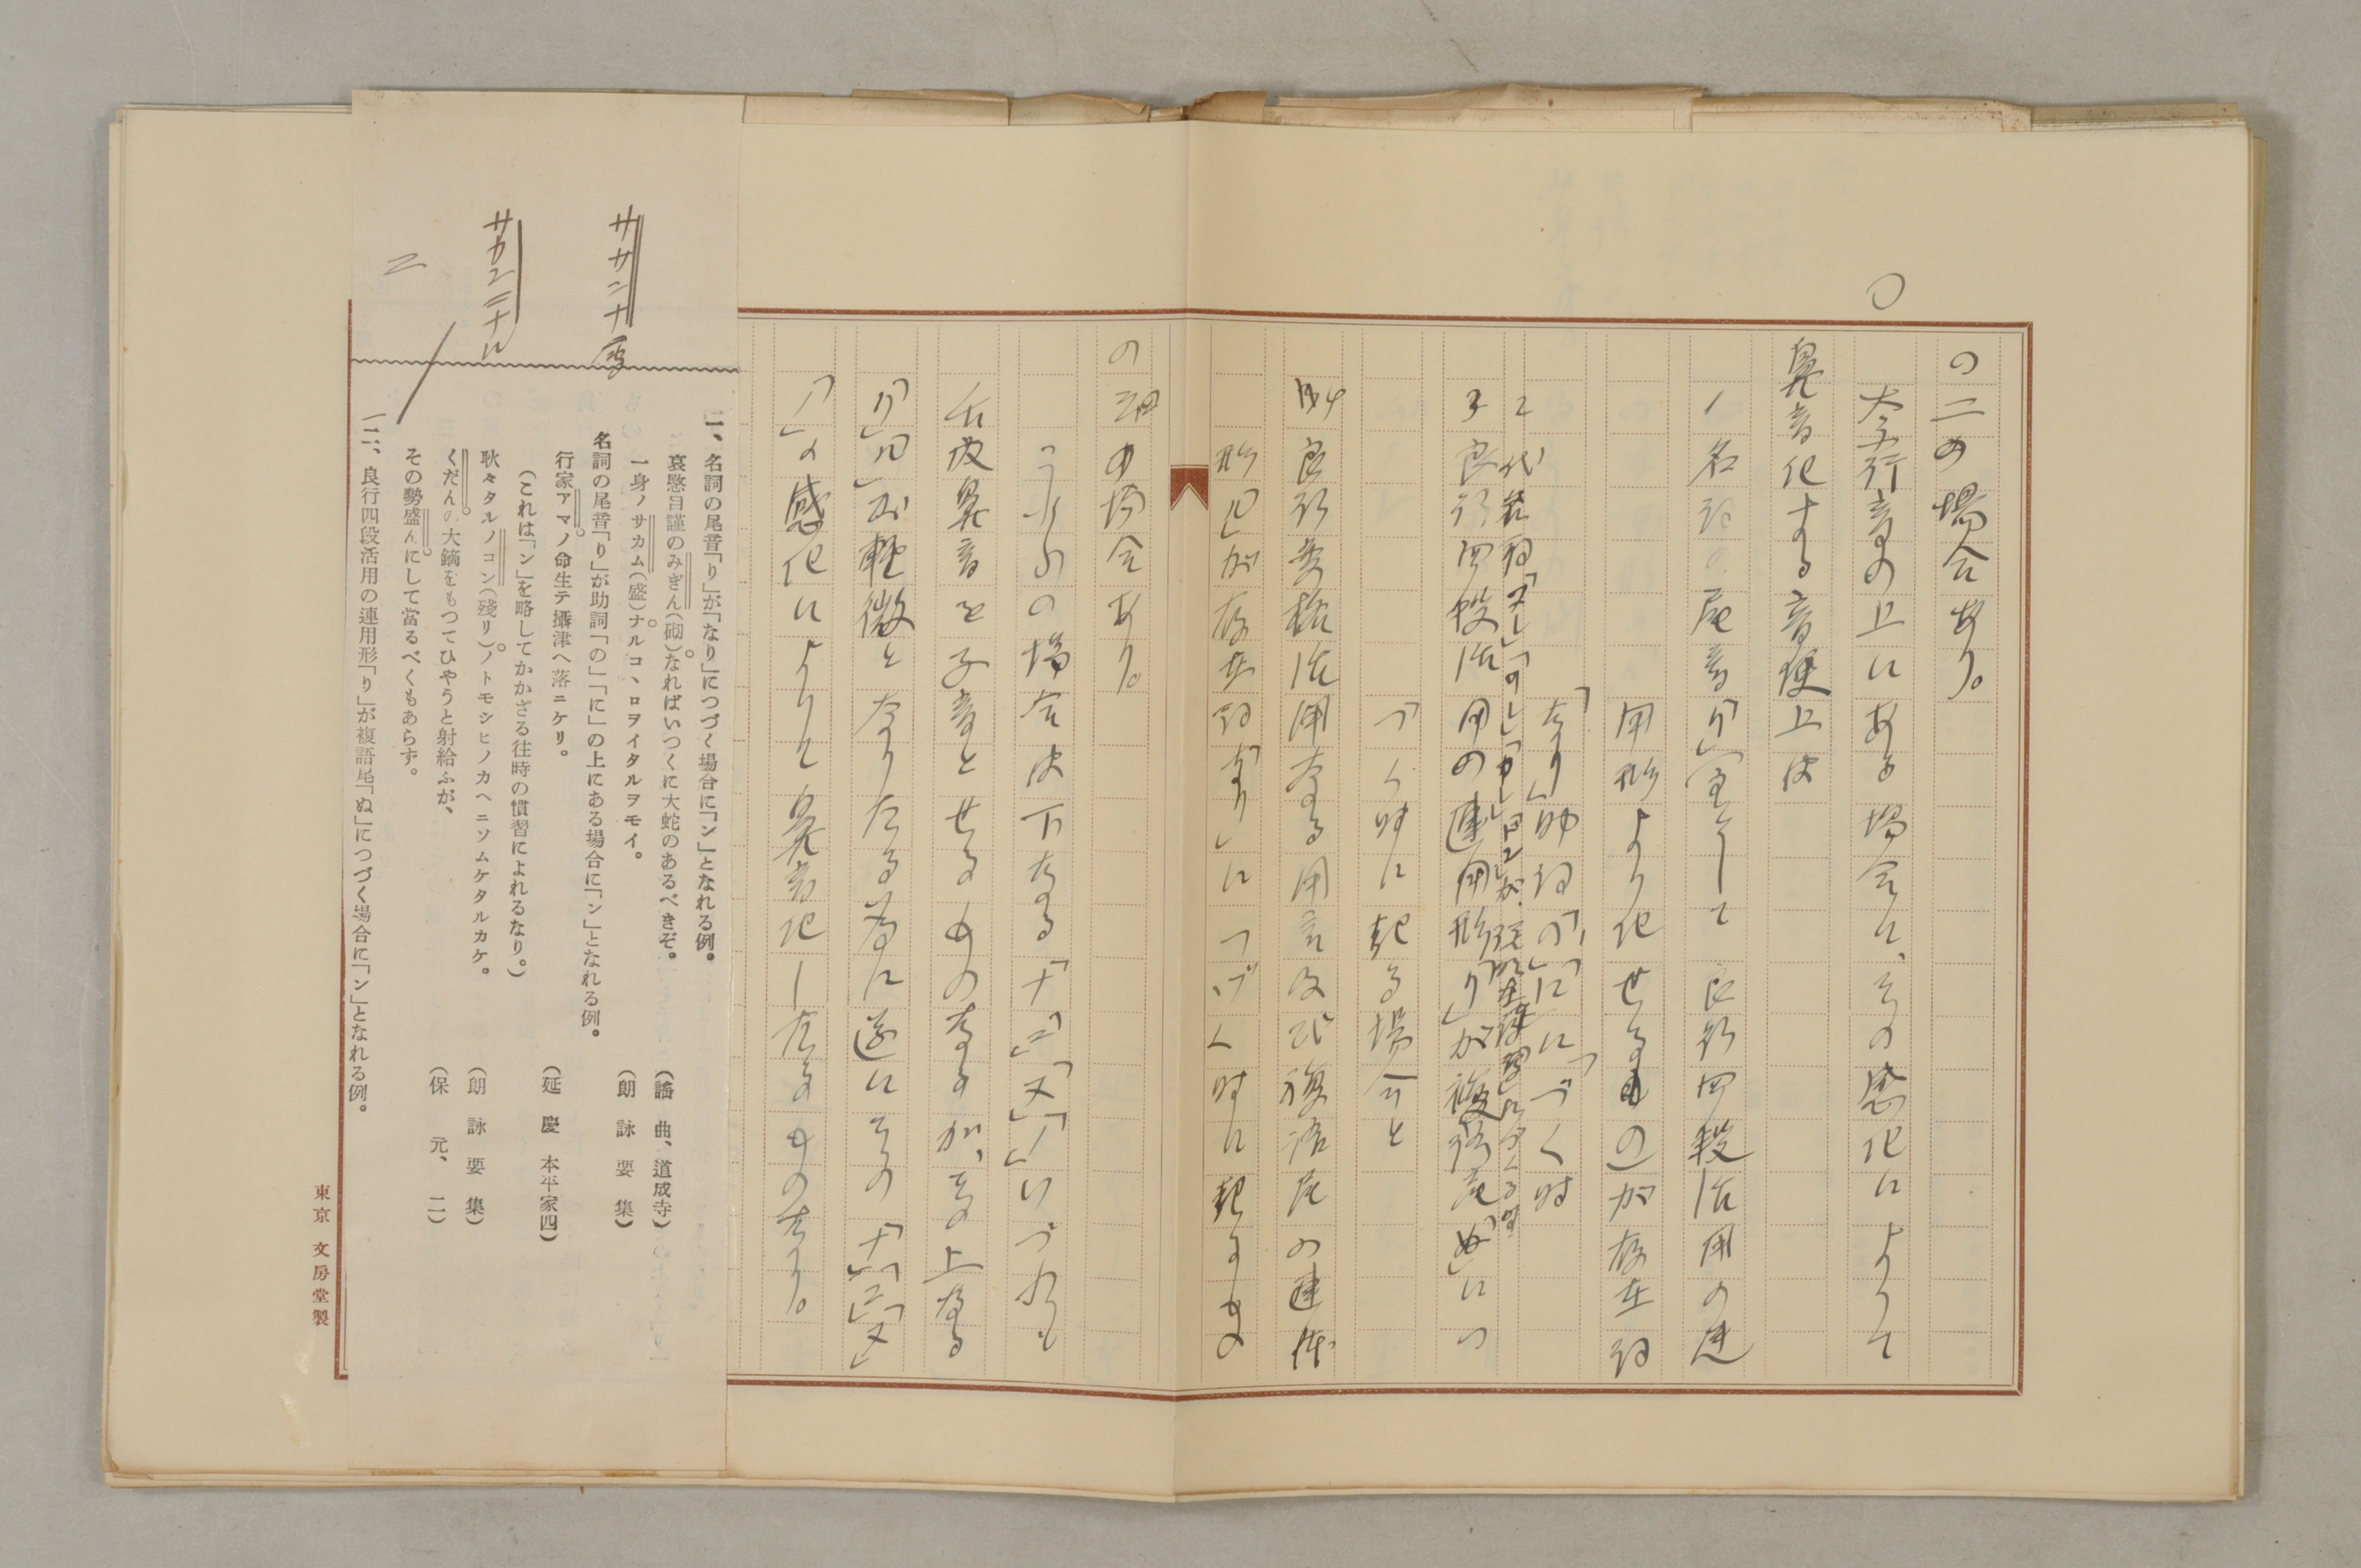 ○
の二の場合あり。
奈行音の上にある場合に、その感化によりて
鼻音化する音便とは
1 名詞の尾音「り」(主として良行四段活用の連
用形より化せるもの)が存在詞
「なり」助詞の「の」「に」につづく時
3 良行四段活用の連用形「り」が複語尾「ぬ」につ
づく時に起る場合と
4 良行変格活用なる用言及び複語尾の連体
形「る」が存在詞「なり」につづく時に起るもの
の三四の場合あり。
これらの場合は下なる「ナ」「ニ」「ヌ」「ノ」いづれも
舌及鼻音を子音とせるものなるが、その上なる
「り」「る」が軽微となりたる為に遂にその「ナ」「ニ」「ヌ」
「ノ」の感化によりて鼻音化したるものなり。
ササニナ
サカンニナル
二
一、名詞の尾音「り」が「なり」につづく場合に「ン」となれる例。
哀愍自謹のみぎん(砌)なればいつくに大蛇のあるべきぞ。(謠曲、道成寺)
一身ノサカム(盛)ナルコヽロヲイタルヲモイ。(朗詠要集)
名詞の尾音「り」が助詞「の」「に」の上にある場合に「ン」となれる例。
行家アマノ命生テ攝津ヘ落ニケリ。(延慶本平家四)
(これは「ン」を略してかかざる往時の慣習によれるなり。)
耿々タルノコン(殘リ)ノトモシヒノカヘニソムケタルカケ。(朗詠要集)
くだんの大鏑をもつてひやうと射給ふが、(保元、二)
その勢盛んにして當るべくもあらず。
二、良行四段活用の連用形「り」が複語尾「ぬ」につづく場合に「ン」となれる例。
東京 文房堂製